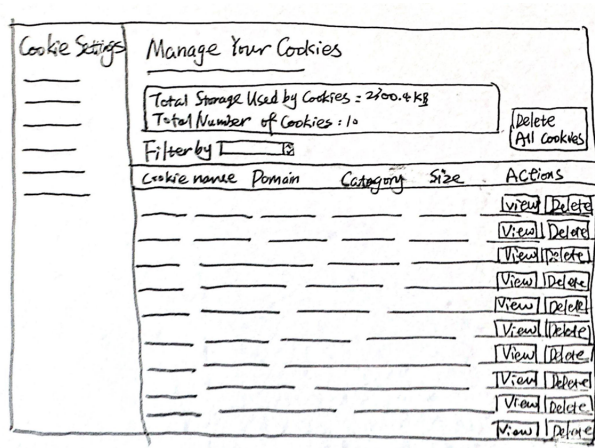 Cookie Settings
Manage Your Cookies
Total Storage Used by Cookies = 2300.4 kB
Total Number of Cookies : 10
Delete
All Cookies
Filter by
Cookie name Domain Category Size Actions
View Delete
View Delete
View Delete
View Delete
View Delete
View Delete
View Delete
View Delete
View Delete
View Delete